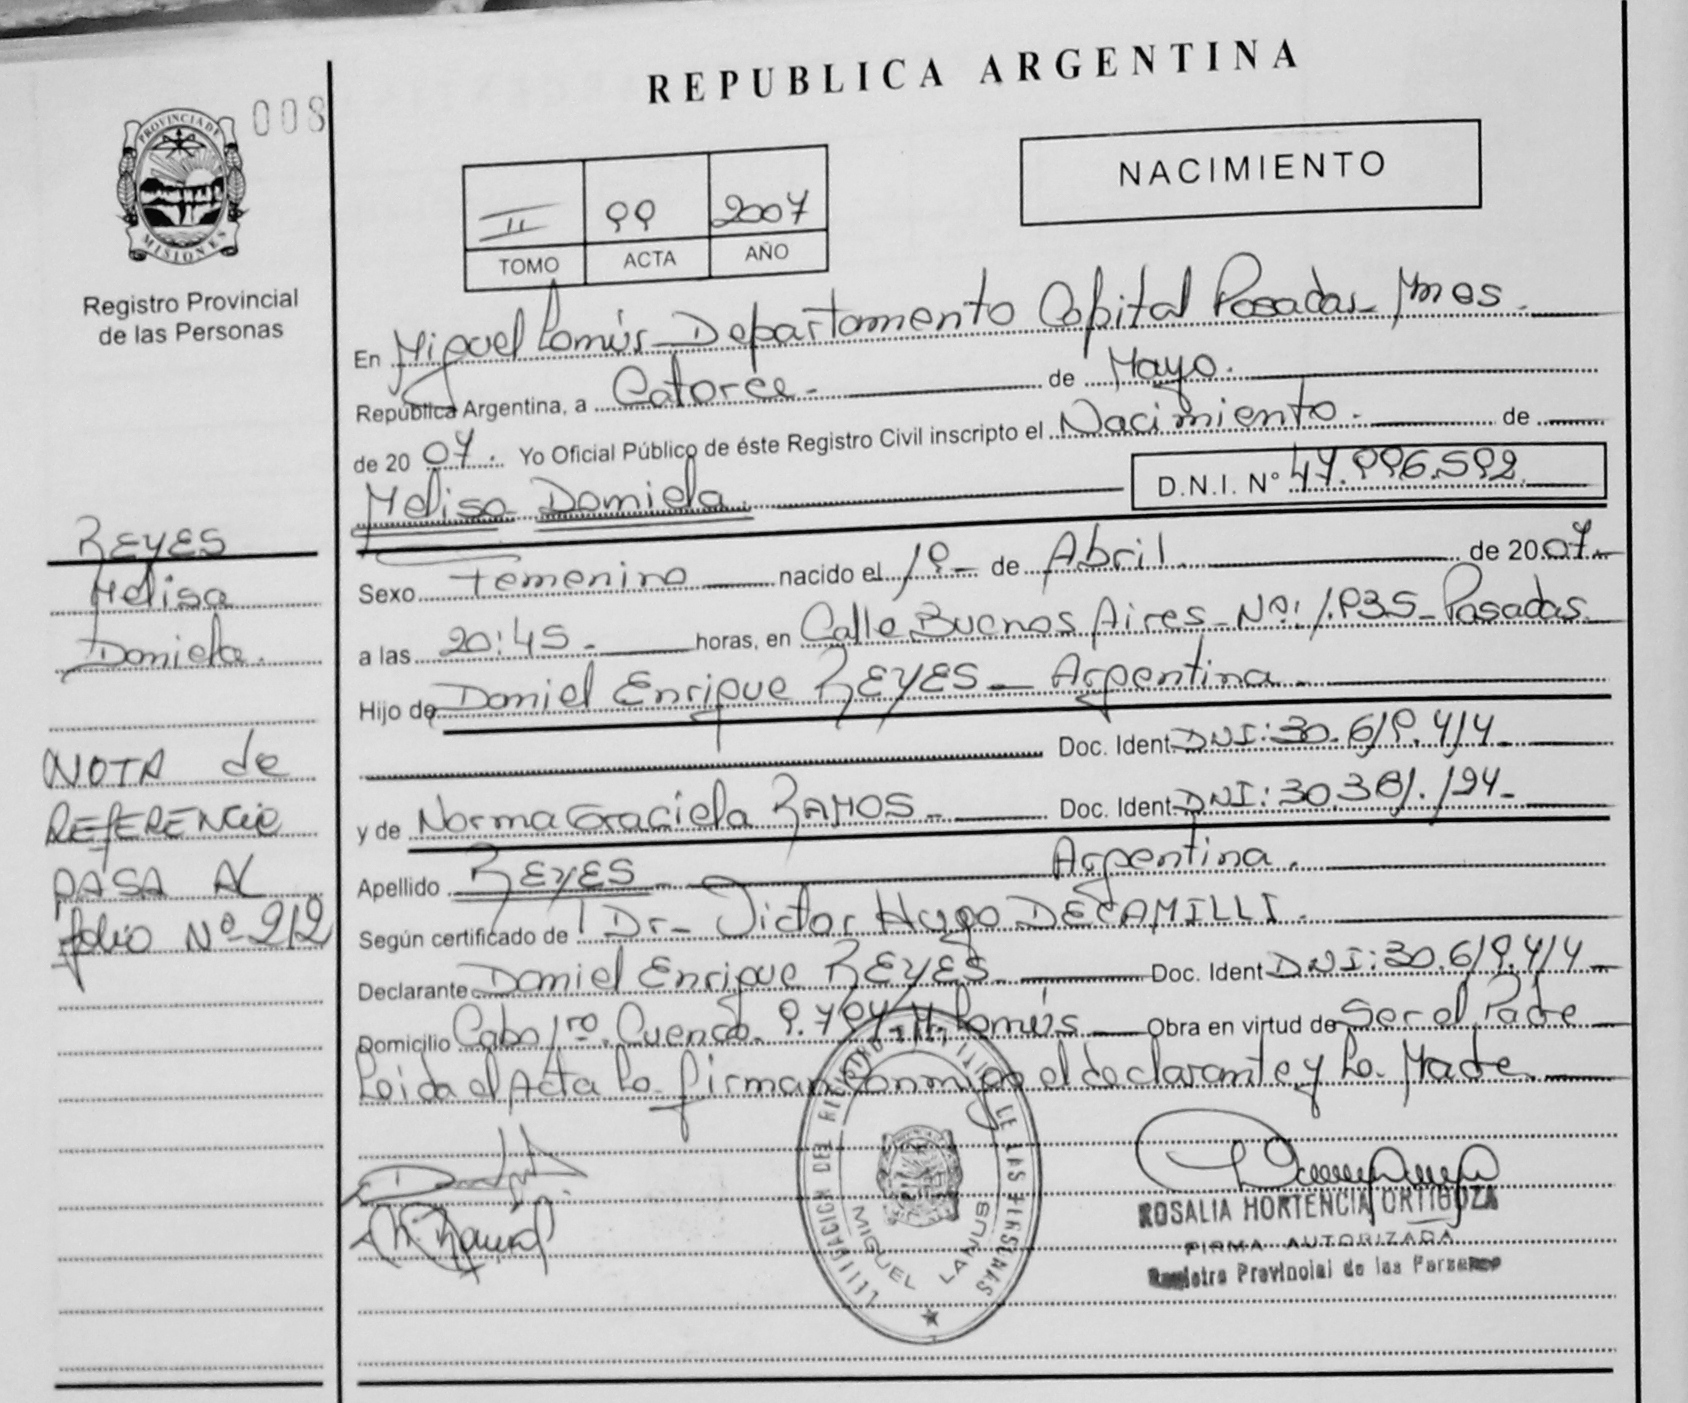 REPUBLICA ARGENTINA
008
PROVINCIA DE
MISIONES
Registro Provincial
de las Personas
NACIMIENTO
II 99 2007
TOMO ACTA AÑO
En Miguel Lanús - Departamento Capital Posadas - Mnes.
República Argentina, a Catorce - de Mayo.
de 20 07. Yo Oficial Público de éste Registro Civil inscripto el Nacimiento. de
Melisa Daniela. D.N.I. Nº 47.996.592
Sexo Femenino nacido el 1º de Abril de 20 07
a las 20:45 - horas, en Calle Buenos Aires - Nº: 1.935 - Posadas.
Hijo de Daniel Enrique REYES - Argentina -
Doc. Ident DNI: 30.619.414
y de Norma Graciela RAMOS - Doc. Ident DNI: 30.381.194 -
Apellido REYES Argentina.
Según certificado de Dr - Victor Hugo DECAMILLI.
Declarante Daniel Enrique REYES - Doc. Ident DNI: 30.619.414
Domicilio Cabo 1ro. Cuenca - M. Lanús Obra en virtud de Ser el Padre
Leida el Acta la firman conmigo el declarante y la Madre.
REYES
Melisa
Daniela.
NOTA de
REFERENCIA
PASA AL
folio Nº 212
DELEGACION DEL REGISTRO DE LAS PERSONAS
MIGUEL LANUS
ROSALIA HORTENCIA ORTIGOZA
FIRMA AUTORIZADA
Registro Provincial de las Personas